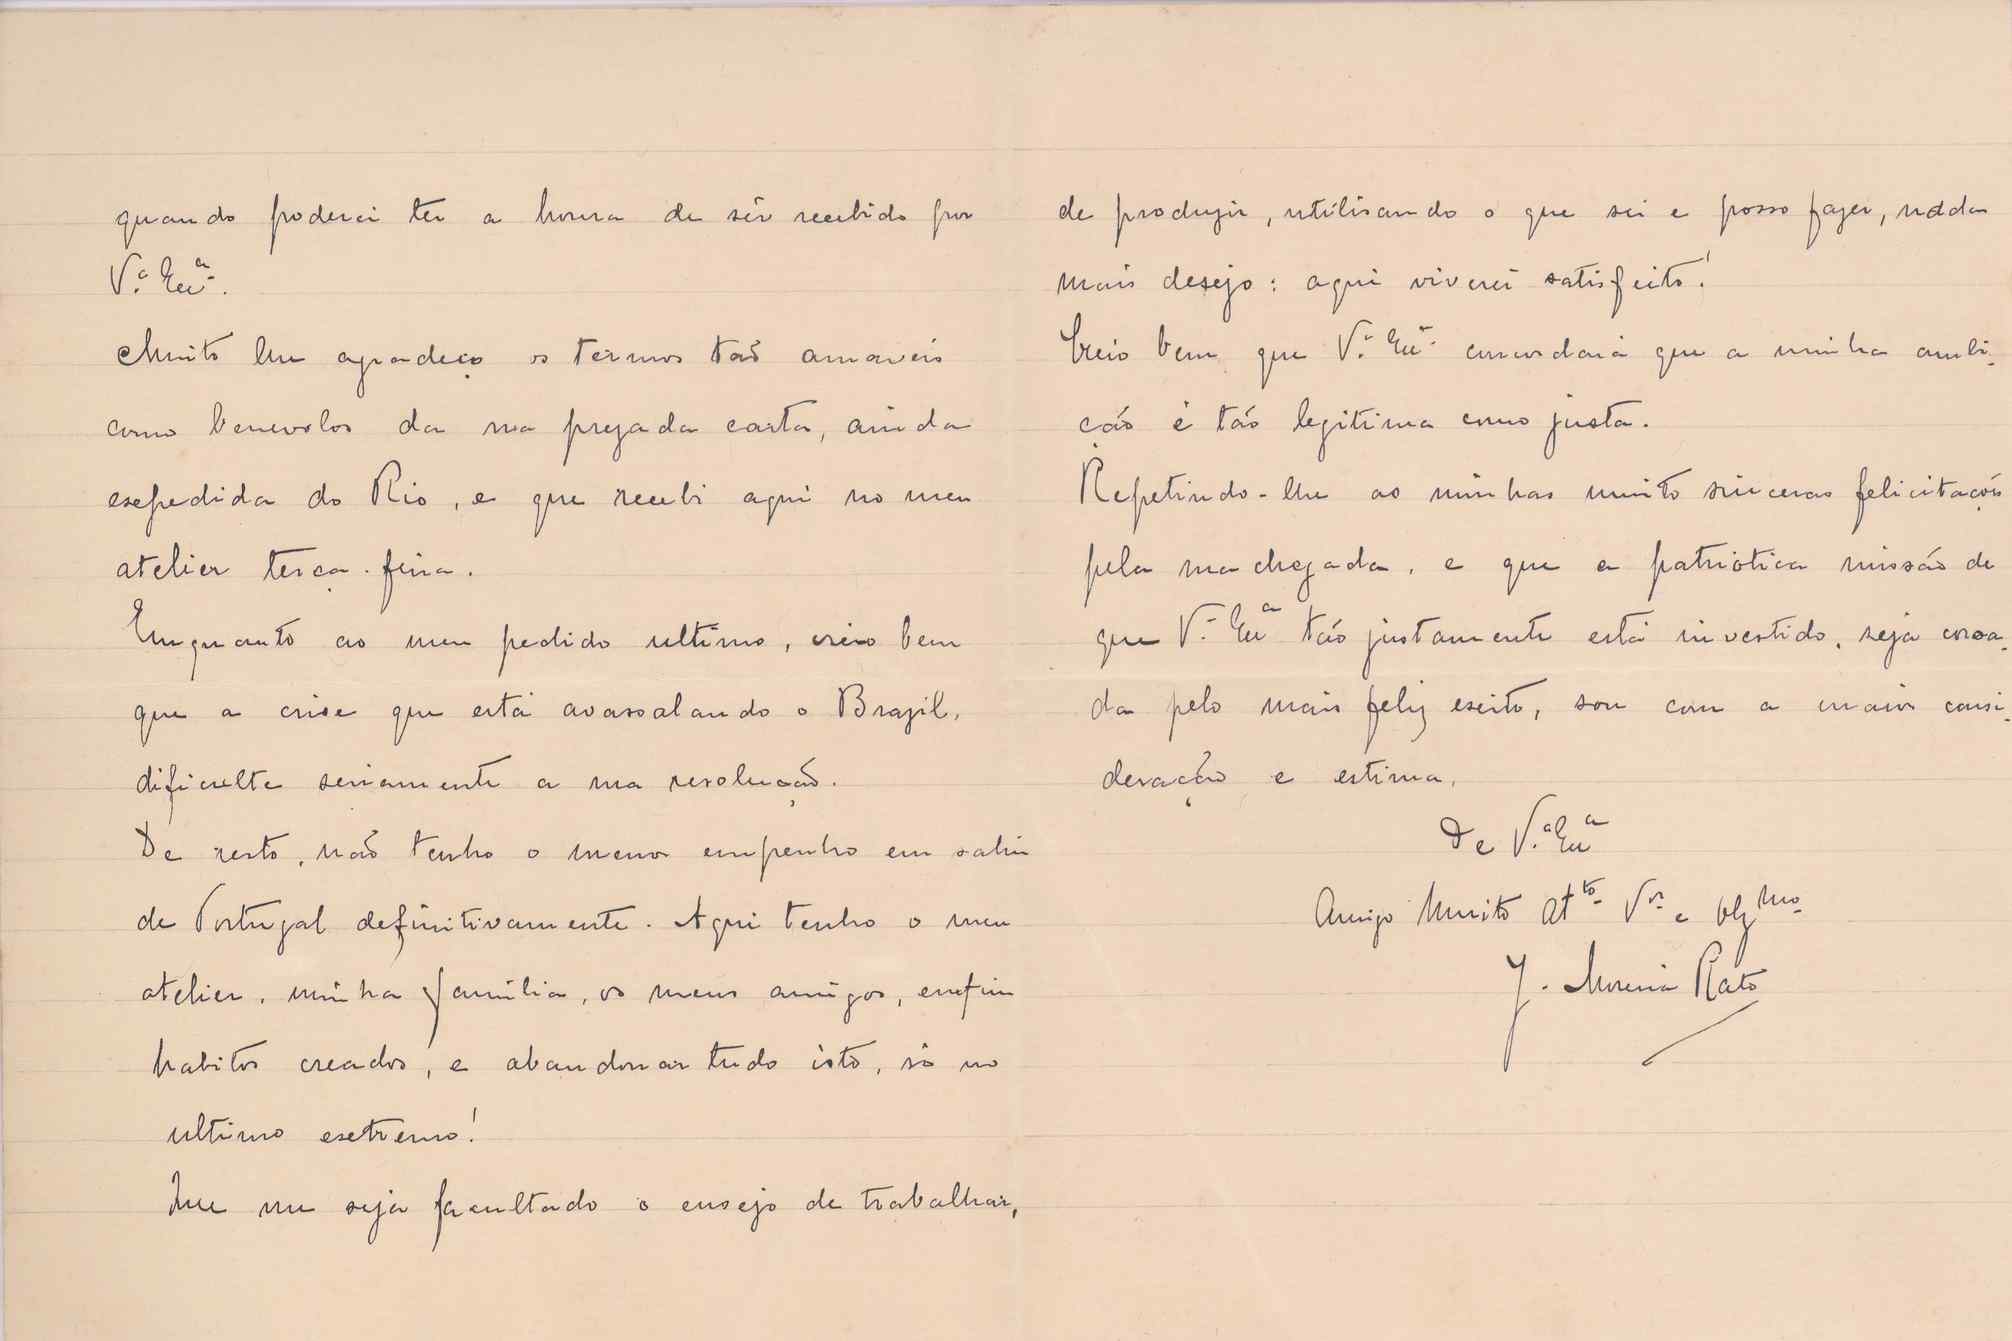 quando poderei ter a honra de sêr recebido por
V.ª Exª.
Muito lhe agradeço os termos taõ amaveis
como benevolos da sua prezada carta, ainda
expedida do Rio, e que recebi aqui no meu
atelier terça-feira.
Emquanto ao meu pedido ultimo, creio bem
que a crise que está avassalando o Brazil,
dificulte seriamente a sua resoluçaõ.
De resto, naõ tenho o menor empenho em sahir
de Portugal definitivamente. Aqui tenho o meu
atelier, minha familia, os meus amigos, emfim
habitos creados, e abandonar tudo isto, só no
ultimo extremo!
Que me seja facultado o ensejo de trabalhar,
de produzir, utilisando o que sei e posso fazer, nada
mais desejo: aqui viverei satisfeito!
Creio bem que V.ª Exª concordará que a minha ambi-
ção é tão legitima como justa.
Repetindo-lhe as minhas muito sinceras felicitações
pela sua chegada, e que a patriotica missão de
que V.ª Exª tão justamente está investido, seja coroa-
da pelo mais feliz exito, sou com a maior consi-
deração e estima,
De V.ª Exª
Amigo Muito Attº Vºr e Obgmo
J. Moreira Rato